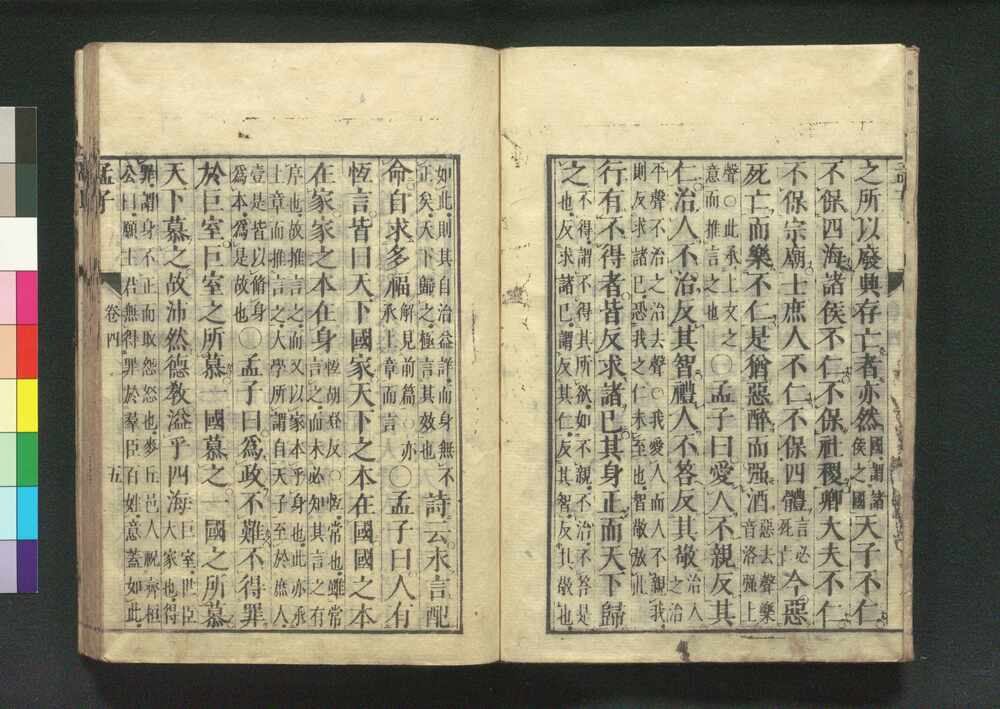 之所以廢興存亡者亦然國謂諸侯之國天子不仁
不保四海諸侯不仁不保社稷卿大夫不仁
不保宗廟士庶人不仁不保四體言必死亡今惡
死亡而樂不仁是猶惡醉而强酒惡去聲樂音洛强上
聲○此承上文之意而推言之也○孟子曰愛人不親反其
仁治人不治反其智禮人不答反其敬治人之治
平聲不治之治去聲○我愛人而人不親我
則反求諸己恐我之仁未至也智敬倣此
行有不得者皆反求諸己其身正而天下歸
之不得謂不得其所欲如不親不治不答是也反求諸己謂反其仁反其智反其敬也
如此則其自治益詳而身無不正矣天下歸之極言其效也詩云永言配
命自求多福解見前篇○亦承上章而言○孟子曰人有
恆言皆曰天下國家天下之本在國國之本
在家家之本在身恆胡登反○恆常也雖常言之而未必知其言之有
序也故推言之而又以家本乎身也此亦承
上章而推言之大學所謂自天子至於庶人
壹是皆以脩身爲本爲是故也○孟子曰爲政不難不得罪
於巨室巨室之所慕一國慕之一國之所慕
天下慕之故沛然德教溢乎四海巨室世臣大家也得
罪謂身不正而取怨怒也麥丘邑人祝齊桓
公曰願主君無得罪於羣臣百姓意蓋如此
孟子 卷四 五